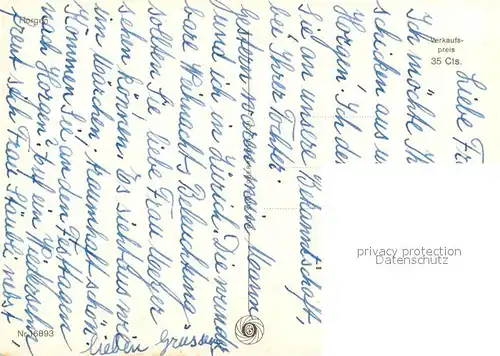 Horgen
Verkaufs-
preis
35 Cts.
Liebe Fr
Ich möchte Ih
schicken aus u
Horgen. Ich de
Sie an unsere Bekanntschaft,
bei Ihrer Tochter.
Gestern waren mein Mann
und ich in Zürich. Die wunder
bare Weihnachts Beleuchtung
sollten Sie liebe Frau Unger
sehen können. Es sieht aus wie
im Märchen, traumhaft schön.
Kommen Sie an den Festtagen
nach Horgen? Auf ein Wiedersehn
freut sich Frau Stäuble nebst
lieben Grüssen
Nr. 16893
privacy protection
Datenschutz